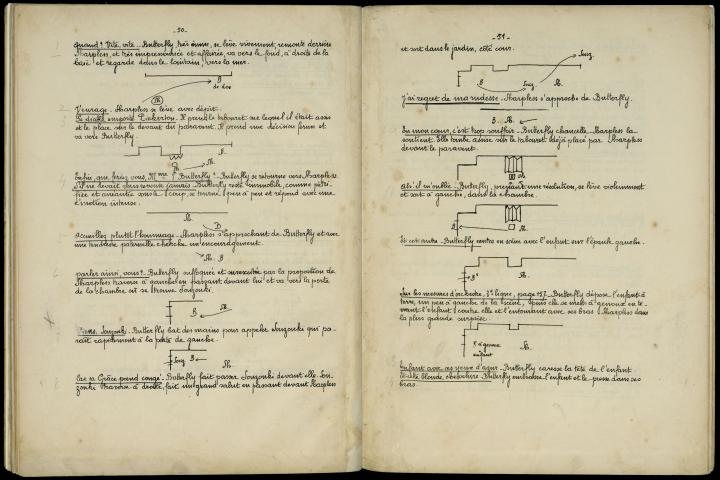 - 50 -
quand? Vite, vite - Butterfly, très émue, se lève vivement, remonte derrière
Sharpless, et très impressionnée et affairée, va vers le fond, à droite de la
baie et regarde dans le lointain, vers la mer.
B
de dos
Sh.
J'enrage. Sharpless se lève avec dépit.
Le diable emporte Pinkerton. Il prend le tabouret sur lequel il était assis
et le place sur le devant du paravent. Il prend une décision ferme et
va vers Butterfly
B.
Sh.
Sh.
Eh bien, que feriez vous, Mme Butterfly? - Butterfly se retourne vers Sharpless
S'il ne devait plus revenir jamais - Butterfly reste immobile, comme pétri-
fiée et anéantie sous le coup, se tourne peu à peu et répond avec une
émotion intense.
Sh.
B
accueillez plutôt l'hommage - Sharpless s'approchant de Butterfly et avec
une tendresse paternelle cherche un encouragement.
Sh. B
parler ainsi, vous? - Butterfly suffoquée et surexcitée par la proposition de
Sharpless traverse à gauche en passant devant lui et va vers la porte
de la chambre où se trouve Souzouki.
B
Sh.
Viens, Souzouki - Butterfly bat des mains pour appeler Souzouki qui pa-
raît rapidement à la porte de gauche.
Souz B
Sh.
Car sa Grâce prend congé - Butterfly fait passer Souzouki devant elle. Sou-
zouki traverse à droite, fait un grand salut en passant devant Sharpless
- 51 -
et sort dans le jardin, côté cour.
Souz
B
Souz
Sh.
J'ai regret de ma rudesse - Sharpless s'approche de Butterfly.
B Sh.
En mon cœur, c'est trop souffrir - Butterfly chancelle, Sharpless la
soutient. Elle tombe assise sur le tabouret déjà placé par Sharpless
devant le paravent.
B
Sh.
Ah! il m'oublie - Butterfly, prenant une résolution, se lève violemment
et sort à gauche, dans la chambre.
B
Sh.
Et cet autre - Butterfly rentre en scène avec l'enfant sur l'épaule gauche.
B
Sh.
Sur les mesures d'orchestre, 3e ligne, page 157 - Butterfly dépose l'enfant à
terre, un peu à gauche de la scène, puis elle se met à genoux en te-
nant l'enfant contre elle et l'entourant avec ses bras. Sharpless dans
la plus grande surprise.
B à genoux
enfant
Sh.
Enfant avec ses yeux d'azur - Butterfly caresse la tête de l'enfant
et cette blonde chevelure - Butterfly embrasse l'enfant et le presse dans ses
bras.